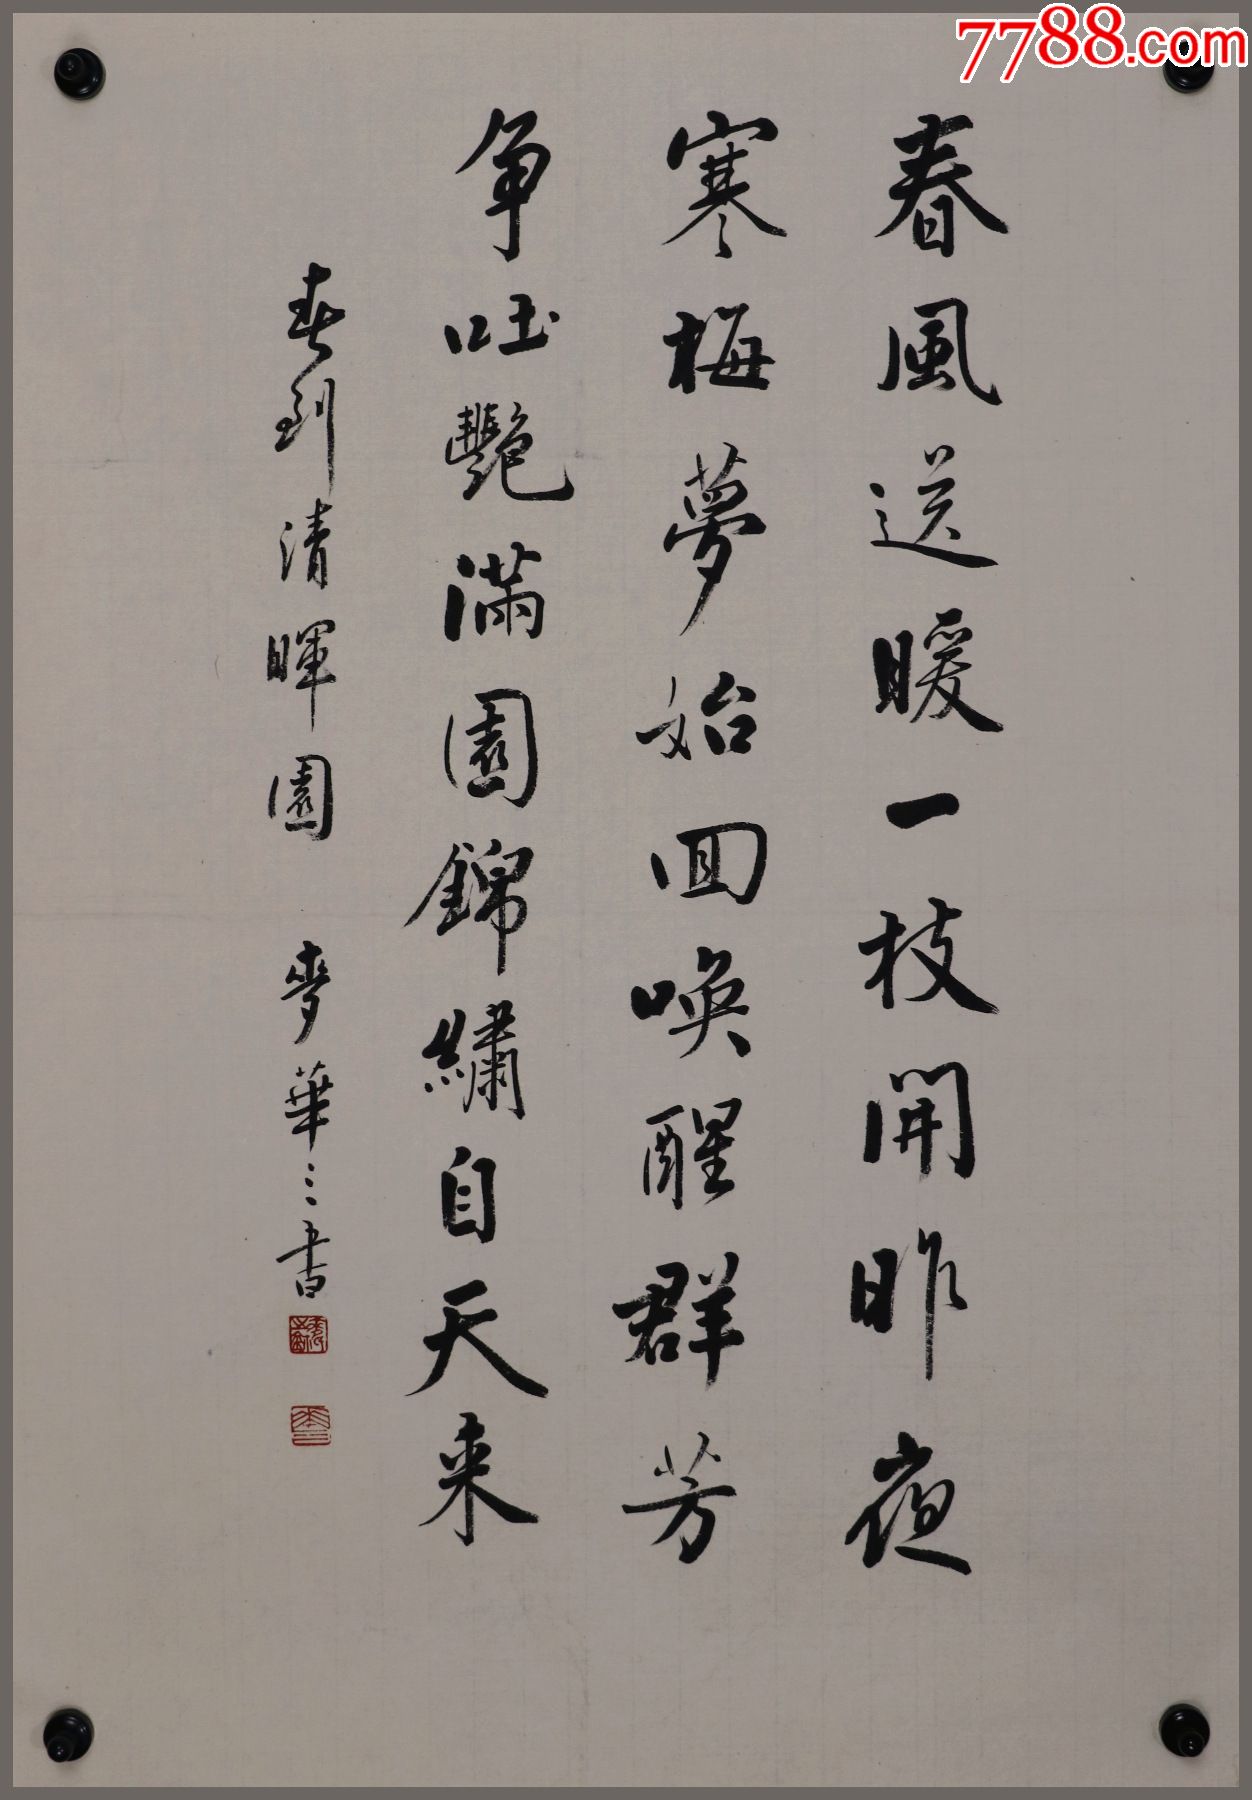 7788.com
春風送暖一枝開昨夜
寒梅夢始回喚醒群芳
争吐艷滿園錦繡自天来
春到清暉園 麥華三書